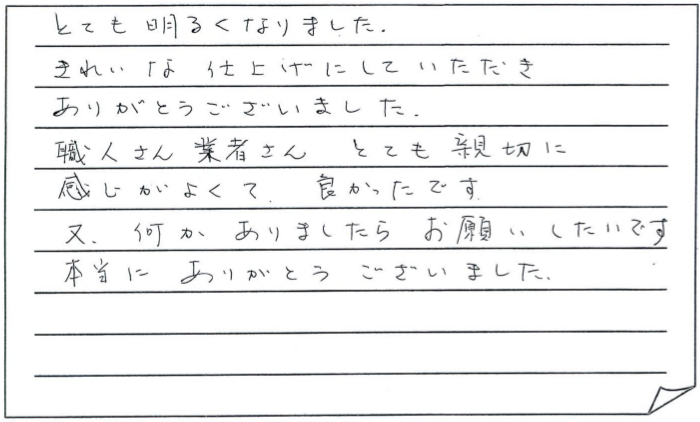 とても明るくなりました.
きれいな仕上げにしていただき
ありがとうございました.
職人さん 業者さん とても親切に
感じがよくて. 良かったです
又. 何かありましたら お願いしたいです
本当に ありがとう ございました.